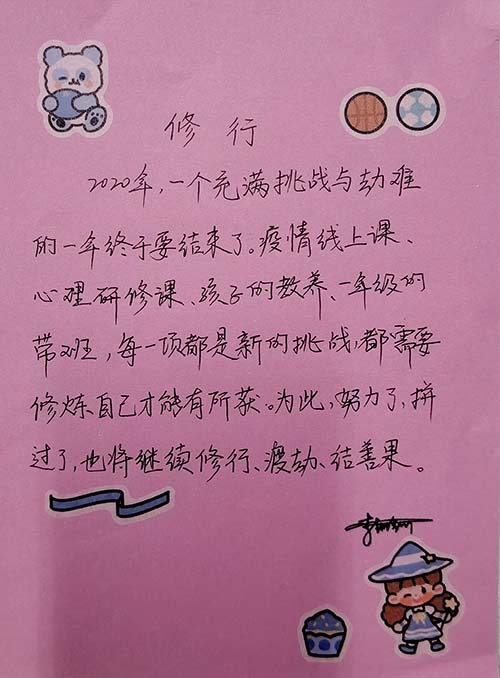 修行
2020年,一个充满挑战与劫难
的一年终于要结束了。疫情线上课、
心理研修课、孩子的教养、一年级的
带班,每一项都是新的挑战,都需要
修炼自己才能有所获。为此,努力了,拼
过了,也将继续修行、渡劫、结善果。